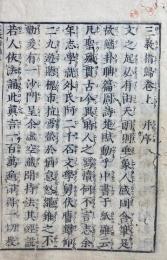 三教指歸卷上 并序
文之起必有由天朗則垂象人感則含筆是
故鱗卦聃篇周詩楚賦動乎中書于紙雖云
凡聖殊貫古今異時人之寫憤何不言志余
年志學就外氏阿二千石文學舅伏膺鑽仰
二九遊聽槐市拉雪螢於猶怠怒繩錐之不
勤爰有一沙門呈余虛空藏聞持法其經說
若人依法誦此眞言一百萬遍卽得一切教